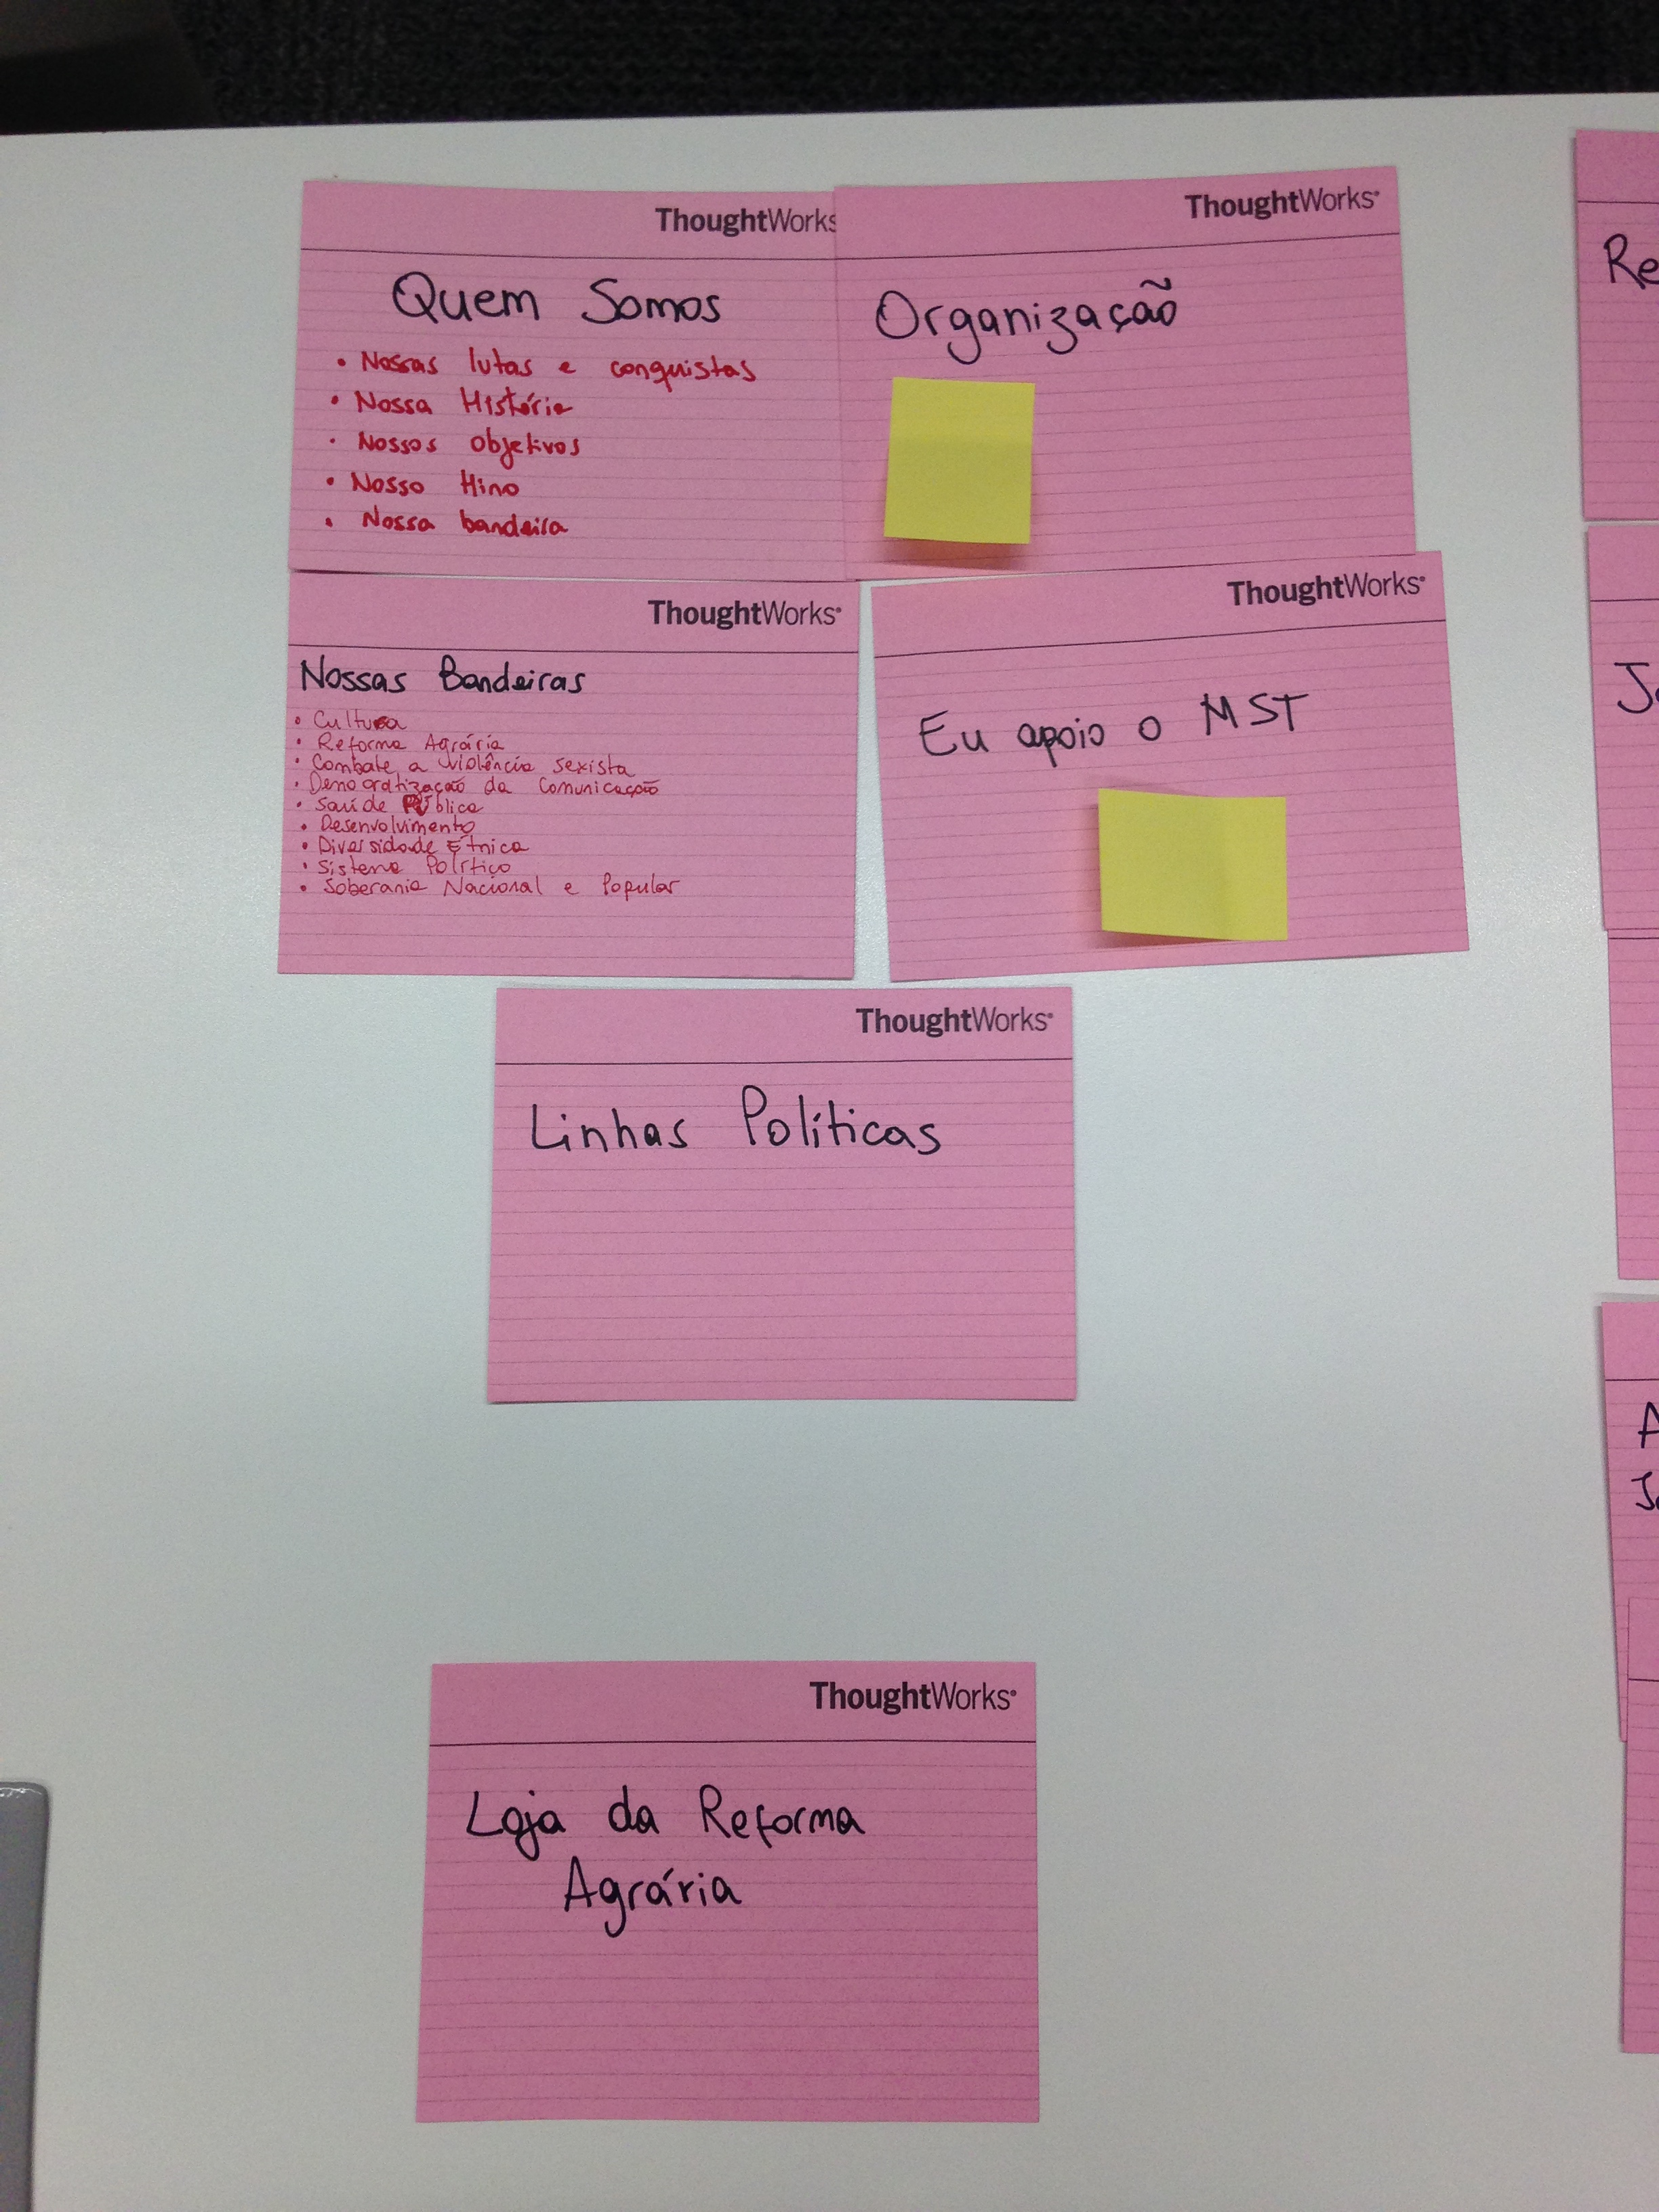 ThoughtWorks
Quem Somos
• Nossas lutas e conquistas
• Nossa História
• Nossos objetivos
• Nosso Hino
• Nossa bandeira
ThoughtWorks®
Organização
ThoughtWorks®
Nossas Bandeiras
• Cultura
• Reforma Agrária
• Combate a violência sexista
• Democratização da Comunicação
• Saúde Pública
• Desenvolvimento
• Diversidade Étnica
• Sistema Político
• Soberania Nacional e Popular
ThoughtWorks®
Eu apoio o MST
ThoughtWorks®
Linhas Políticas
ThoughtWorks®
Loja da Reforma
Agrária